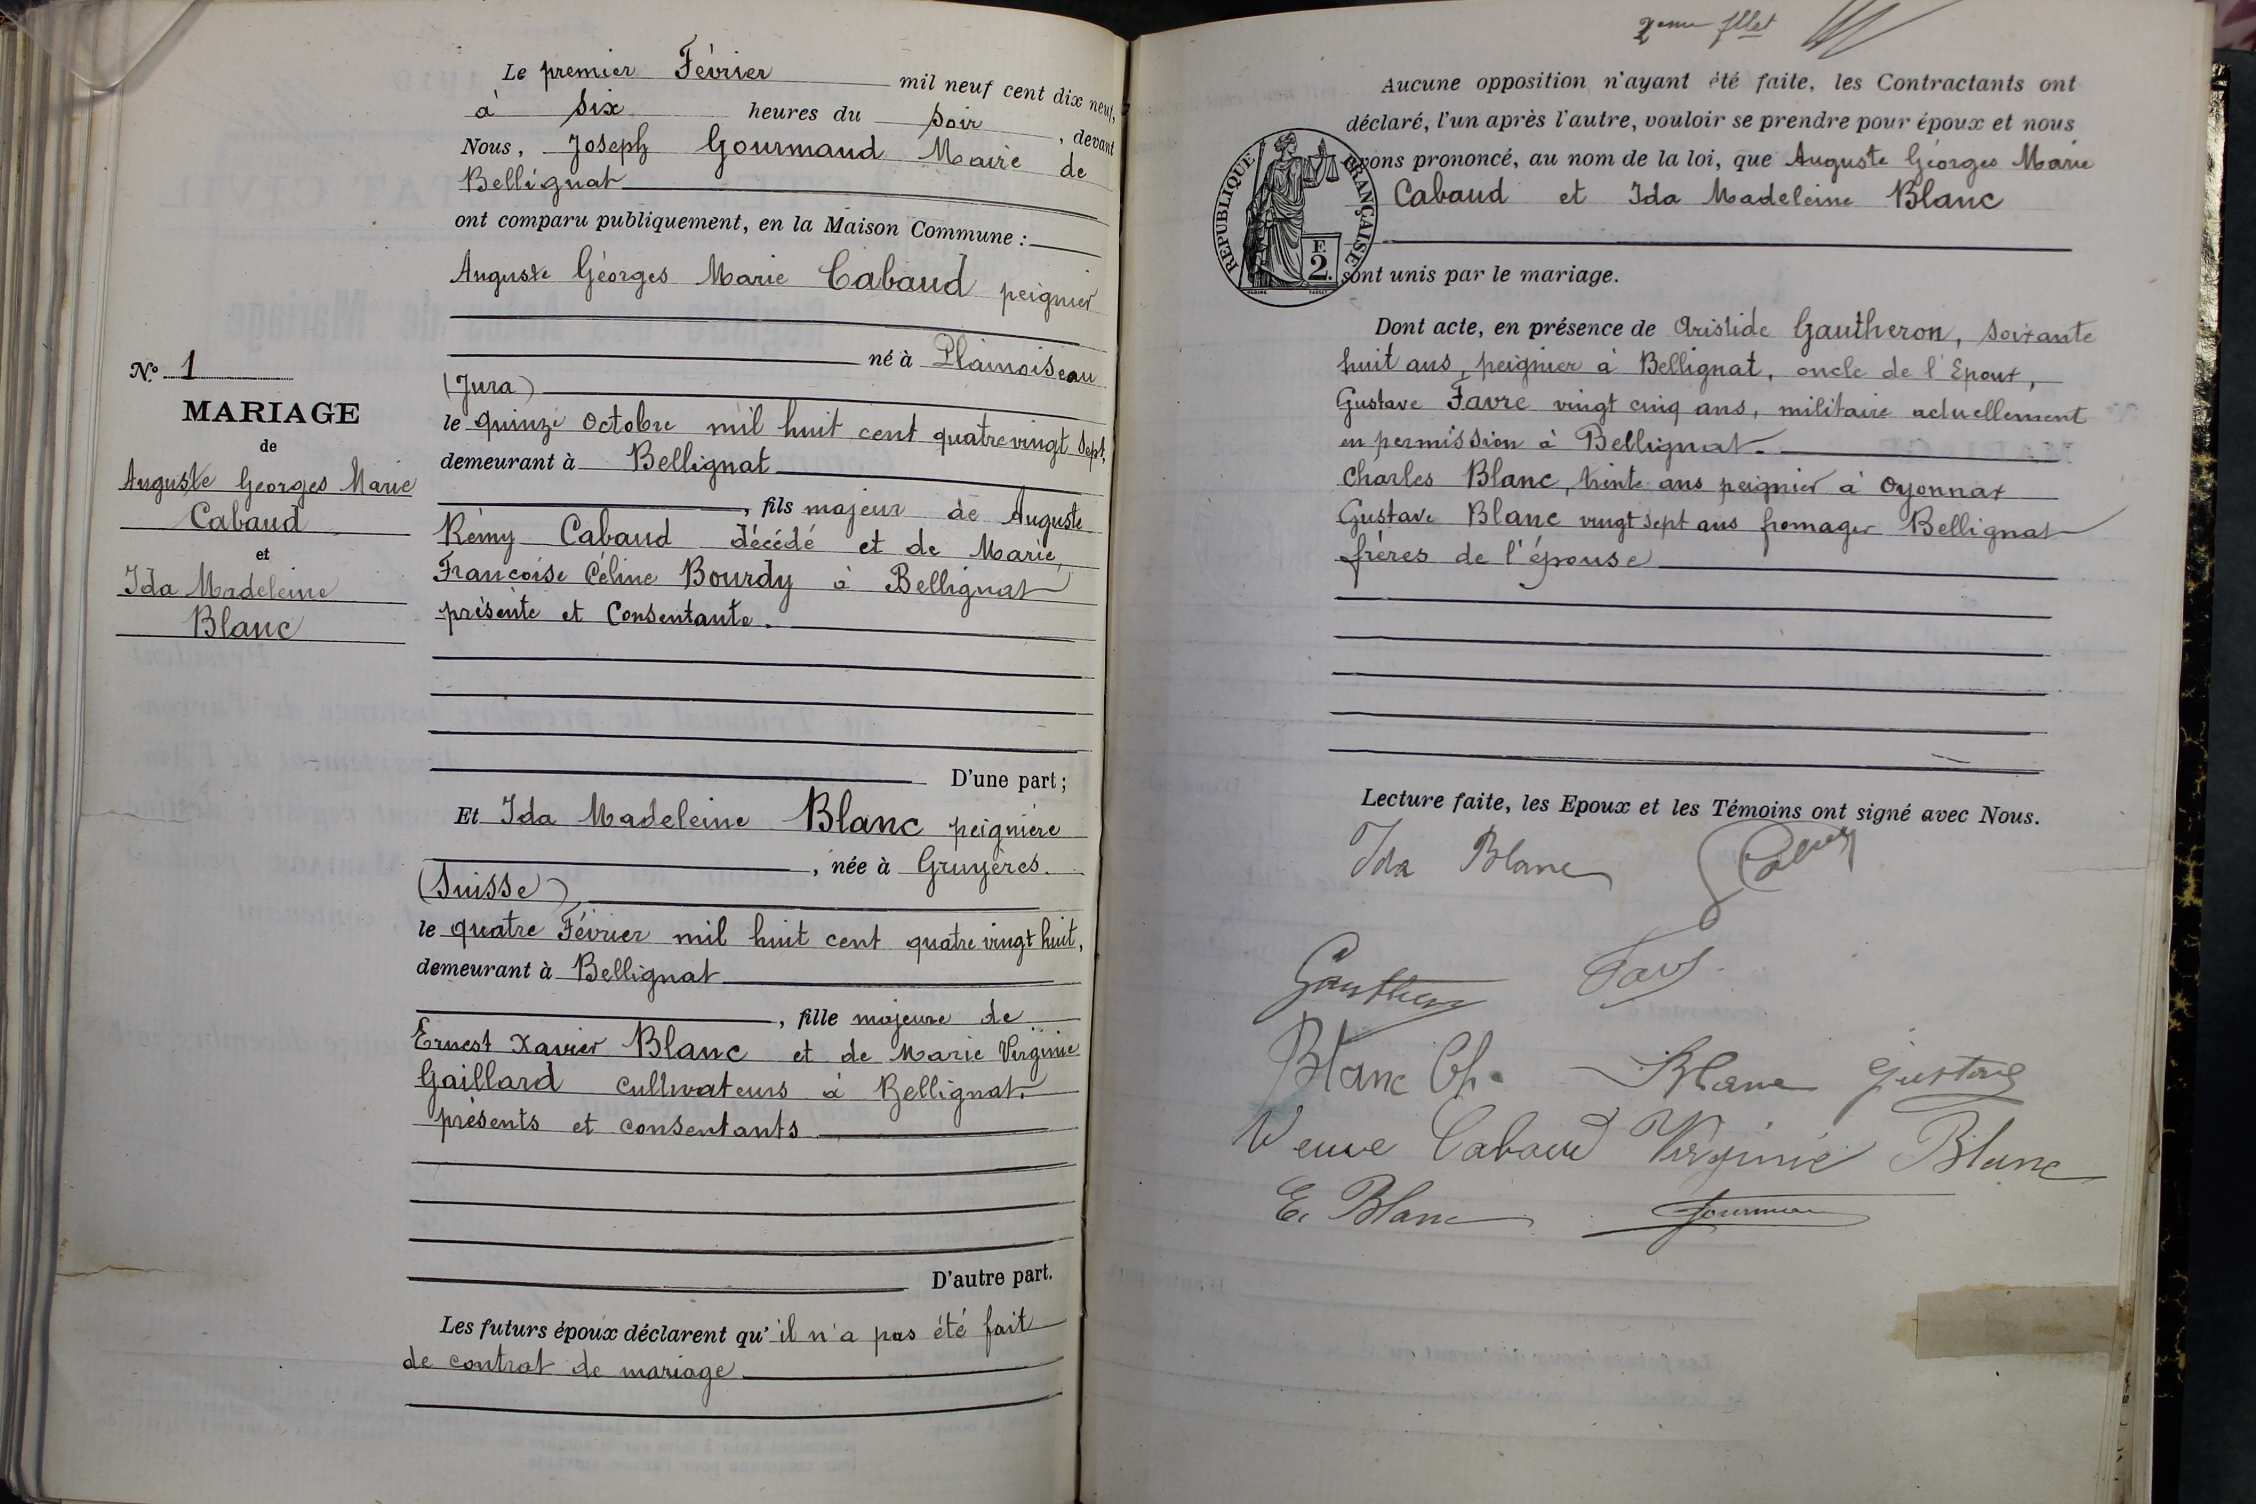 Le premier Février mil neuf cent dix neuf,
à six heures du soir, devant
Nous, Joseph Gourmand Maire de
Bellignat
ont comparu publiquement, en la Maison Commune :
Auguste Géorges Marie Cabaud peignier
né à Plainoiseau
(Jura)
le quinze Octobre mil huit cent quatre vingt sept,
demeurant à Bellignat
, fils majeur de Auguste
Rémy Cabaud décédé et de Marie,
Françoise Céline Bourdy à Bellignat
présente et Consentante.
D'une part ;
Et Ida Madeleine Blanc peignière
, née à Gruyères.
(Suisse)
le quatre Février mil huit cent quatre vingt huit,
demeurant à Bellignat
, fille majeure de
Ernest Xavier Blanc et de Marie Virginie
Gaillard cultivateurs à Bellignat.
présents et consentants
D'autre part.
Les futurs époux déclarent qu'il n'a pas été fait
de contrat de mariage
N.º 1
MARIAGE
de
Auguste Georges Marie
Cabaud
et
Ida Madeleine
Blanc
2eme
Aucune opposition n'ayant été faite, les Contractants ont
déclaré, l'un après l'autre, vouloir se prendre pour époux et nous
avons prononcé, au nom de la loi, que Auguste Géorges Marie
Cabaud et Ida Madeleine Blanc
sont unis par le mariage.
REPUBLIQUE FRANÇAISE
F.
2.
Dont acte, en présence de Aristide Gautheron, soixante
huit ans, peignier à Bellignat, oncle de l'Epoux,
Gustave Favre vingt cinq ans, militaire actuellement
en permission à Bellignat.
Charles Blanc, trente ans peignier à Oyonnax
Gustave Blanc vingt sept ans fromager Bellignat
frères de l'épouse
Lecture faite, les Epoux et les Témoins ont signé avec Nous.
Ida Blanc
Blanc Ch. Blanc Gustave
Veuve Cabaud Virginie Blanc
E. Blanc